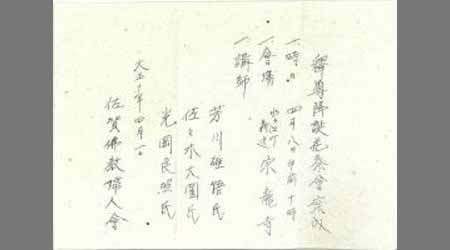 釋尊降誕花奏會案內
一、時日 四月八日午前十時
一、會場 水ヶ江町 宗龍寺
一、講師
芳川雄悟氏
佐々木大圓氏
光岡良照氏
大正 年四月一日
佐賀佛教婦人會